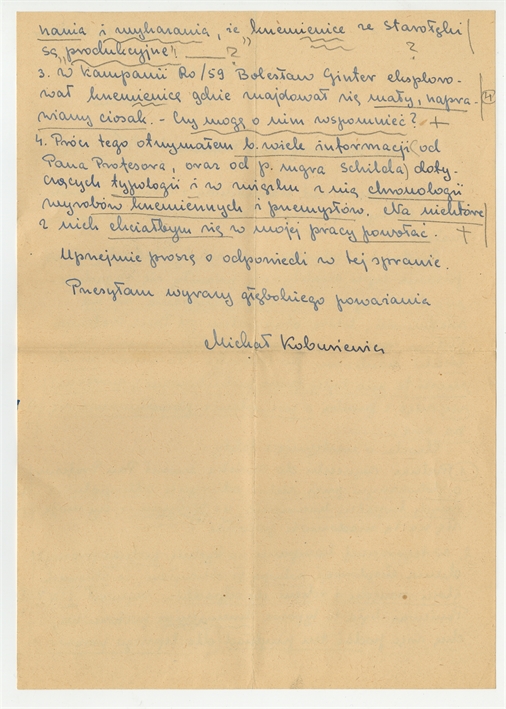 nania i wykazania, że „krzemienice ze Starołęki
są „produkcyjne". ?
?
3. W kampanii Ro/59 Bolesław Ginter eksploro-
wał krzemienicę gdzie znajdował się mały, napra-
wiany ciosak. - Czy mogę o nim wspomnieć? +
4. Prócz tego otrzymałem b. wiele informacji (od
Pana Profesora, oraz od p. mgra Schilda) doty-
czących typologii i w związku z nią chronologii
wyrobów krzemiennych i przemysłów. Na niektóre
z nich chciałbym się w mojej pracy powołać. +
Uprzejmie proszę o odpowiedź w tej sprawie.
Przesyłam wyrazy głębokiego poważania
Michał Kobusiewicz